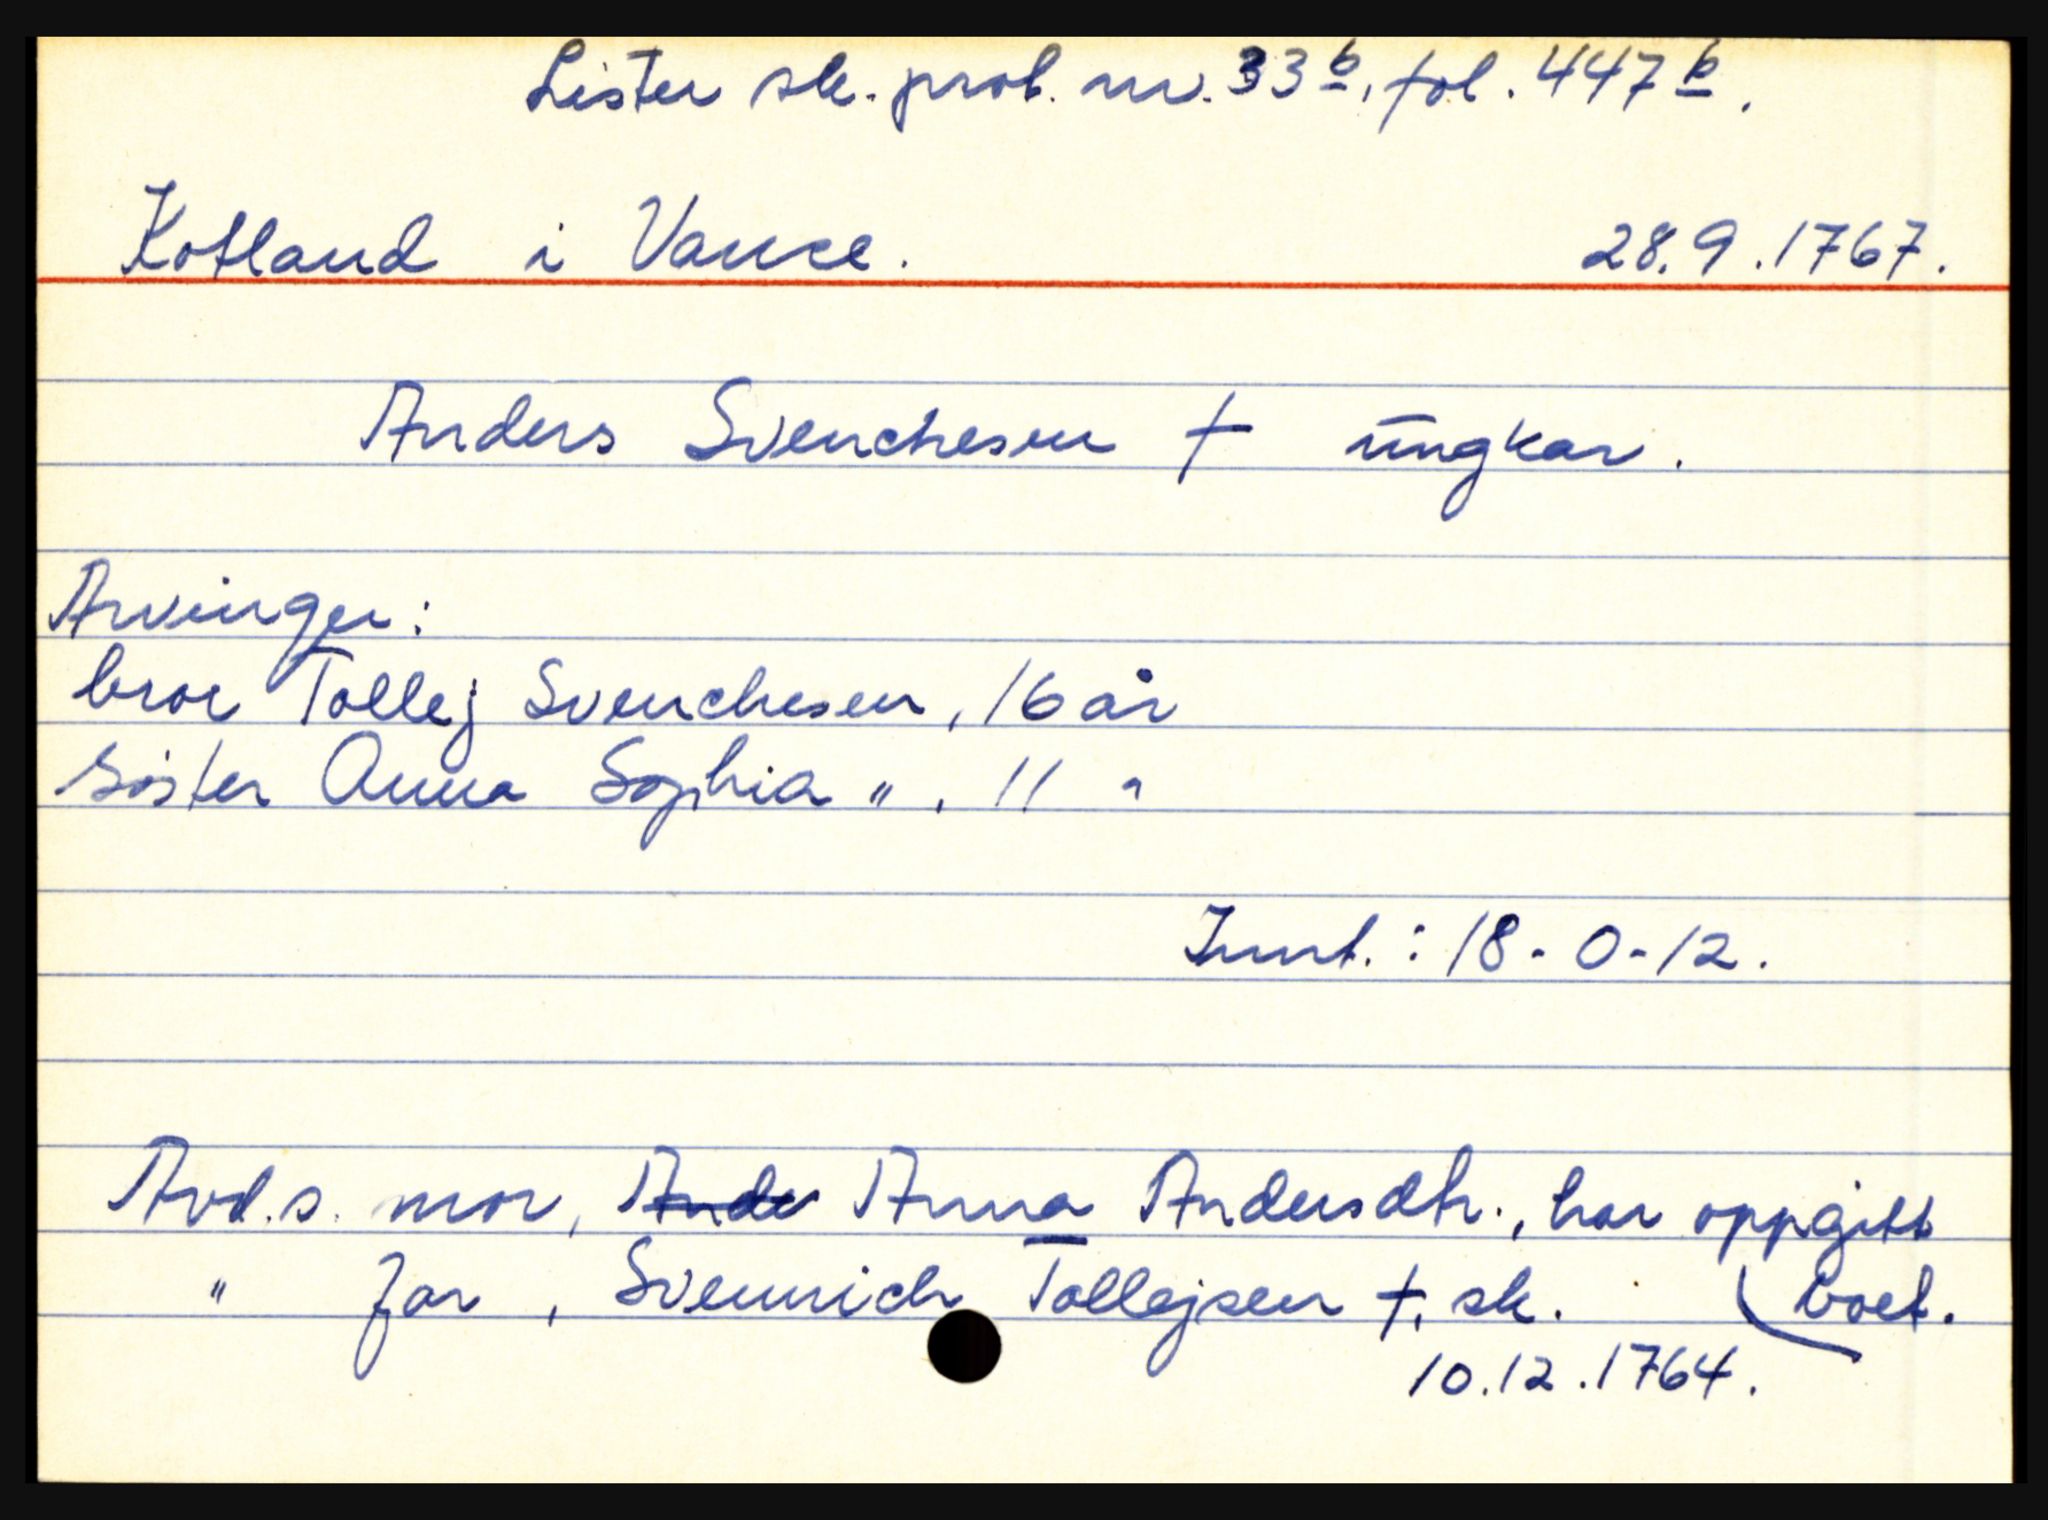 Lister sk. prot. nr. 33 b, fol. 447 b.
Kotland i Vanse. 28.9.1767.
Anders Svenchesen † ungkar.
Arvinger:
bror Tollej Svenchesen, 16 år
søster Anna Sophia " , 11 "
Innt.: 18-0-12.
Avd.s. mor, Ande Anna Andersdtr., har oppgitt
" far, Svennich Tollejsen †, sk. boet.
10.12.1764.